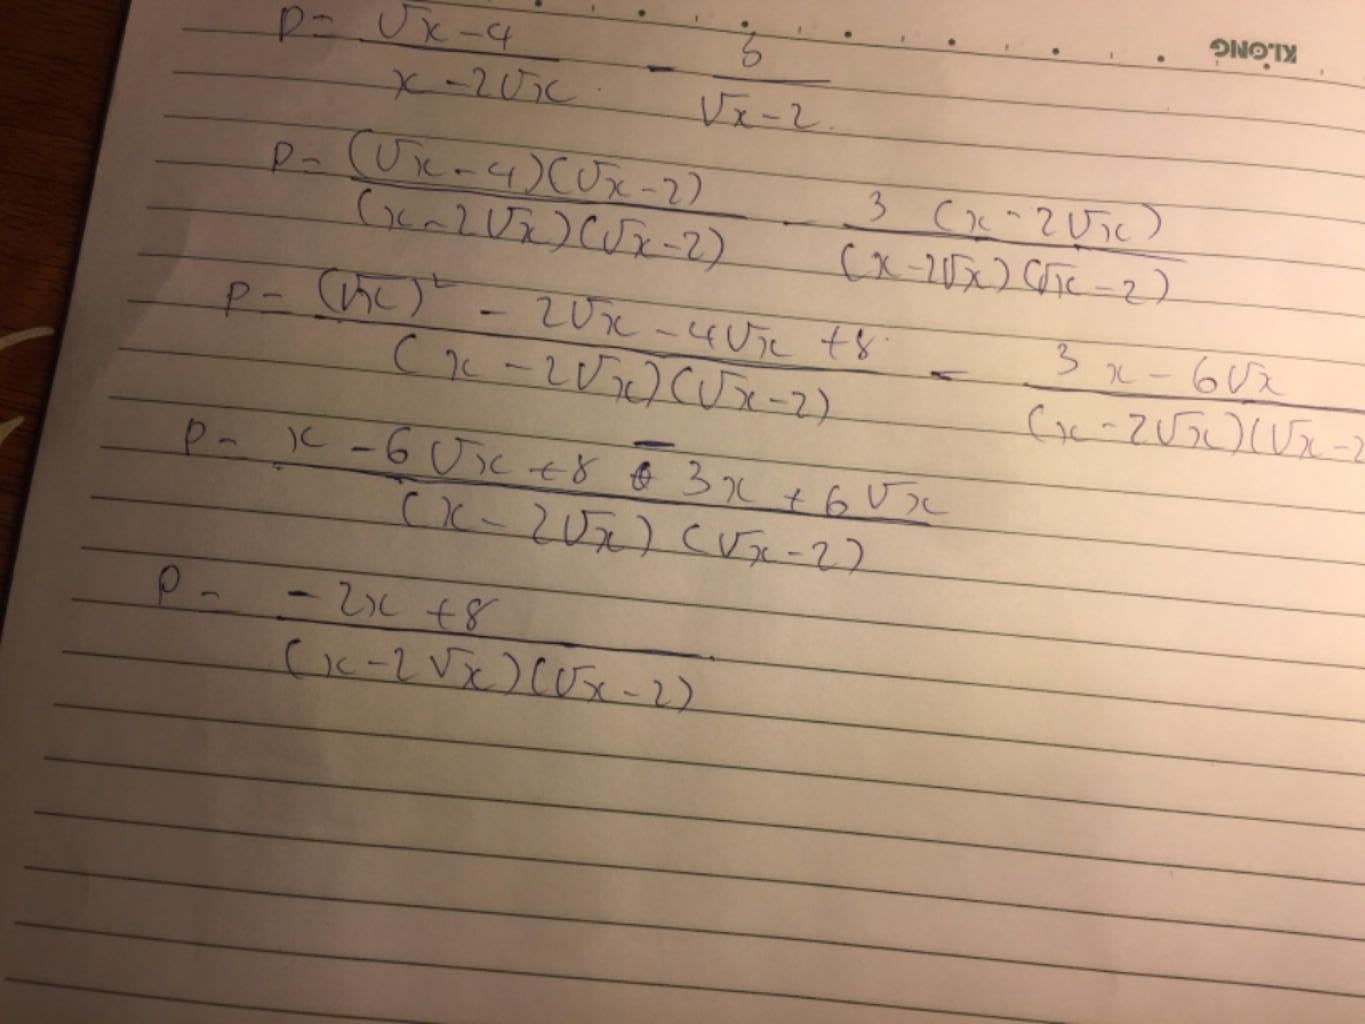 KLONG
P = (√x - 4)/(x - 2√x) - 3/(√x - 2)
P = ((√x - 4)(√x - 2))/((x - 2√x)(√x - 2)) - (3 (x - 2√x))/((x - 2√x)(√x - 2))
P = ((√x)² - 2√x - 4√x + 8)/((x - 2√x)(√x - 2)) - (3x - 6√x)/((x - 2√x)(√x - 2
P = (x - 6√x + 8 - 3x + 6√x)/((x - 2√x)(√x - 2))
P = (-2x + 8)/((x - 2√x)(√x - 2))